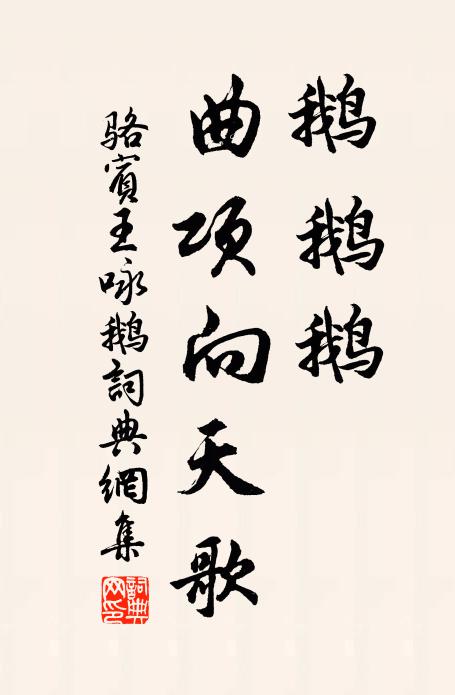 鹅鹅鹅
曲项向天歌
骆賓王咏鹅詞典網集
詞典网印